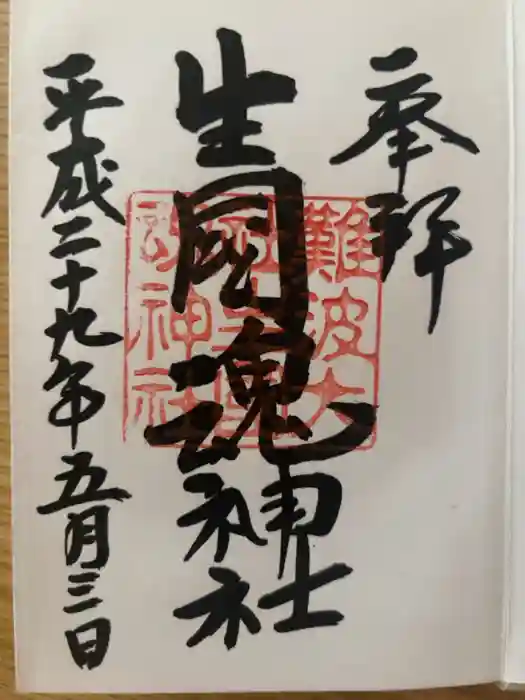 奉拝
生國魂神社
難波大
社生國
魂神社
平成二十九年五月三日